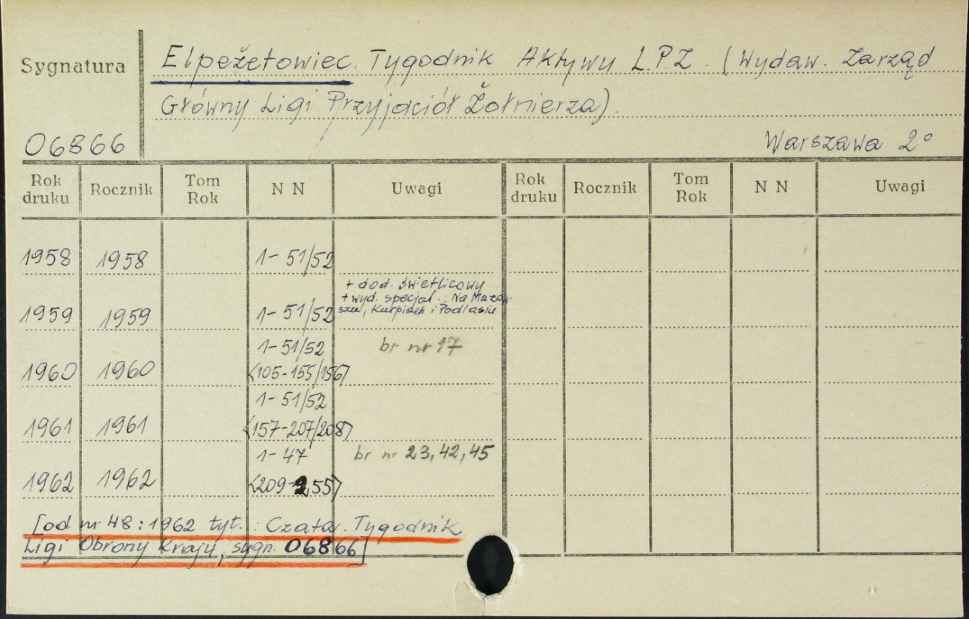 Sygnatura
Elpeżetowiec. Tygodnik Aktywu L.P.Ż. (Wydaw. Zarząd
Główny Ligi Przyjaciół Żołnierza).
06866
Warszawa 2°
Rok druku Rocznik Tom Rok N N Uwagi Rok druku Rocznik Tom Rok N N Uwagi
1958 1958 1-51/52
+ dod. świetlicowy
+ wyd. specjal.: Na Mazow-
szu, Kurpiach i Podlasiu
1959 1959 1-51/52
1-51/52 br nr 17
1960 1960 <105-155/156>
1-51/52
1961 1961 <157-207/208>
1-47 br nr 23, 42, 45
1962 1962 <209-255>
[od nr 48:1962 tyt.: Czata. Tygodnik
Ligi Obrony Kraju, sygn. 06866]